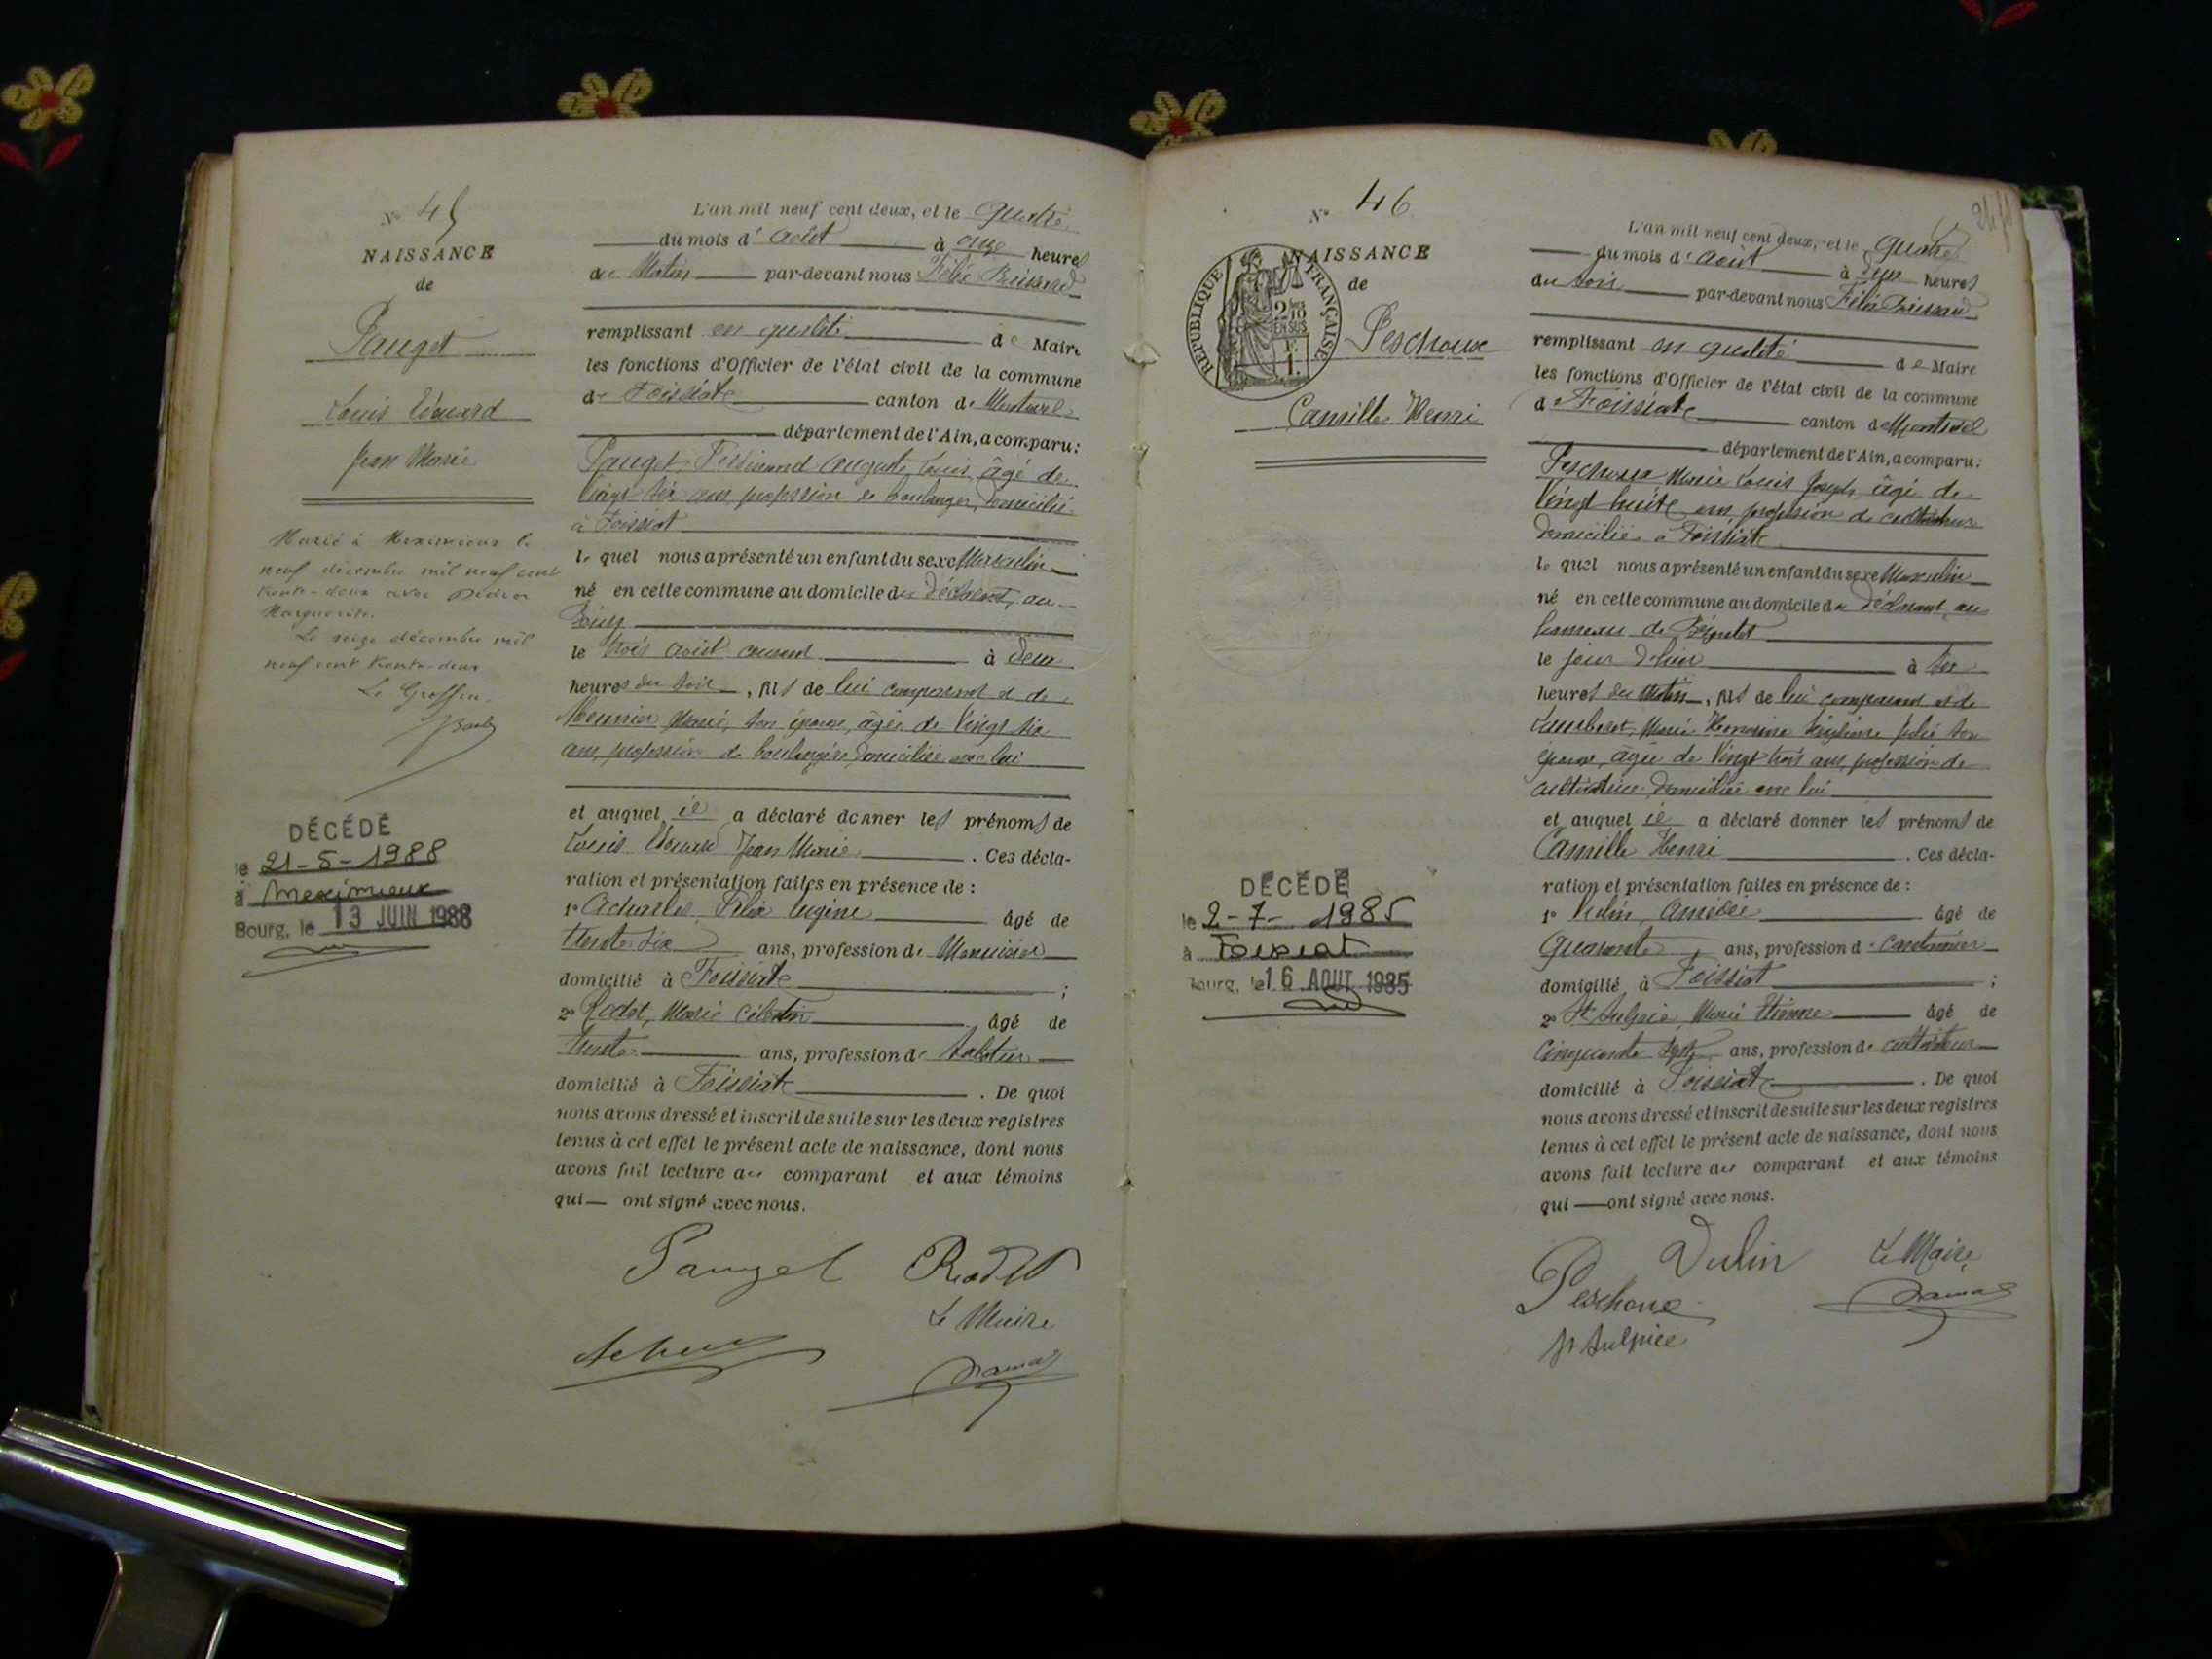 N° 45
NAISSANCE
de
Pauget
Louis Edouard
Jean Marie
Marié à Meximieux le
neuf décembre mil neuf cent
trente-deux avec
Marguerite.
Le seize décembre mil
neuf cent trente-deux
Le Greffier
DÉCÉDÉ
le 21-5-1988
à Meximieux
Bourg, le 13 JUIN 1988
L'an mil neuf cent deux, et le quatre
du mois d'août à onze heures
du Matin par-devant nous Félix
remplissant en qualité de Maire
les fonctions d'Officier de l'état civil de la commune
de Foissiat canton de Montrevel
département de l'Ain, a comparu:
Pauget Ferdinand Auguste Louis, âgé de
vingt six ans, profession de boulanger, domicilié
à Foissiat
le quel nous a présenté un enfant du sexe Masculin
né en cette commune au domicile du déclarant, au
Bourg
le trois août courant à deux
heures du soir, fils de lui comparant et de
Meunier Marie, son épouse, âgée de vingt six
ans, profession de boulangère, domiciliée avec lui
et auquel il a déclaré donner les prénoms de
Louis Edouard Jean Marie. Ces décla-
ration et présentation faites en présence de :
1° Félix Eugène âgé de
trente six ans, profession de Menuisier
domicilié à Foissiat ;
2° Rodet, Marie Célestin âgé de
trente ans, profession de sabotier
domicilié à Foissiat. De quoi
nous avons dressé et inscrit de suite sur les deux registres
tenus à cet effet le présent acte de naissance, dont nous
avons fait lecture au comparant et aux témoins
qui — ont signé avec nous.
Pauget Rodet
Le Maire
N° 46
NAISSANCE
de
REPUBLIQUE FRANÇAISE
2/10
EN SUS
1.
Peschoux
Camille Henri
DÉCÉDÉ
le 2-7-1985
à Foissiat
Bourg, le 16 AOUT 1985
L'an mil neuf cent deux, et le quatre
du mois d'août à deux heures
du soir par-devant nous Félix
remplissant en qualité de Maire
les fonctions d'Officier de l'état civil de la commune
de Foissiat canton de Montrevel
département de l'Ain, a comparu:
Peschoux Marie Louis Joseph, âgé de
vingt huit ans profession de cultivateur
domicilié à Foissiat
le quel nous a présenté un enfant du sexe Masculin
né en cette commune au domicile du déclarant, au
hameau de
le jour d'hier à six
heures du Matin, fils de lui comparant et de
Marie Julie son
épouse, âgée de vingt trois ans, profession de
cultivatrice, domiciliée avec lui
et auquel il a déclaré donner les prénoms de
Camille Henri. Ces décla-
ration et présentation faites en présence de :
1° Vulin, Amédée âgé de
quarante ans, profession de cantonnier
domicilié à Foissiat ;
2° St Sulpice, Marie Etienne âgé de
cinquante sept ans, profession de cultivateur
domicilié à Foissiat. De quoi
nous avons dressé et inscrit de suite sur les deux registres
tenus à cet effet le présent acte de naissance, dont nous
avons fait lecture au comparant et aux témoins
qui — ont signé avec nous.
Vulin Le Maire
Peschoux
St Sulpice